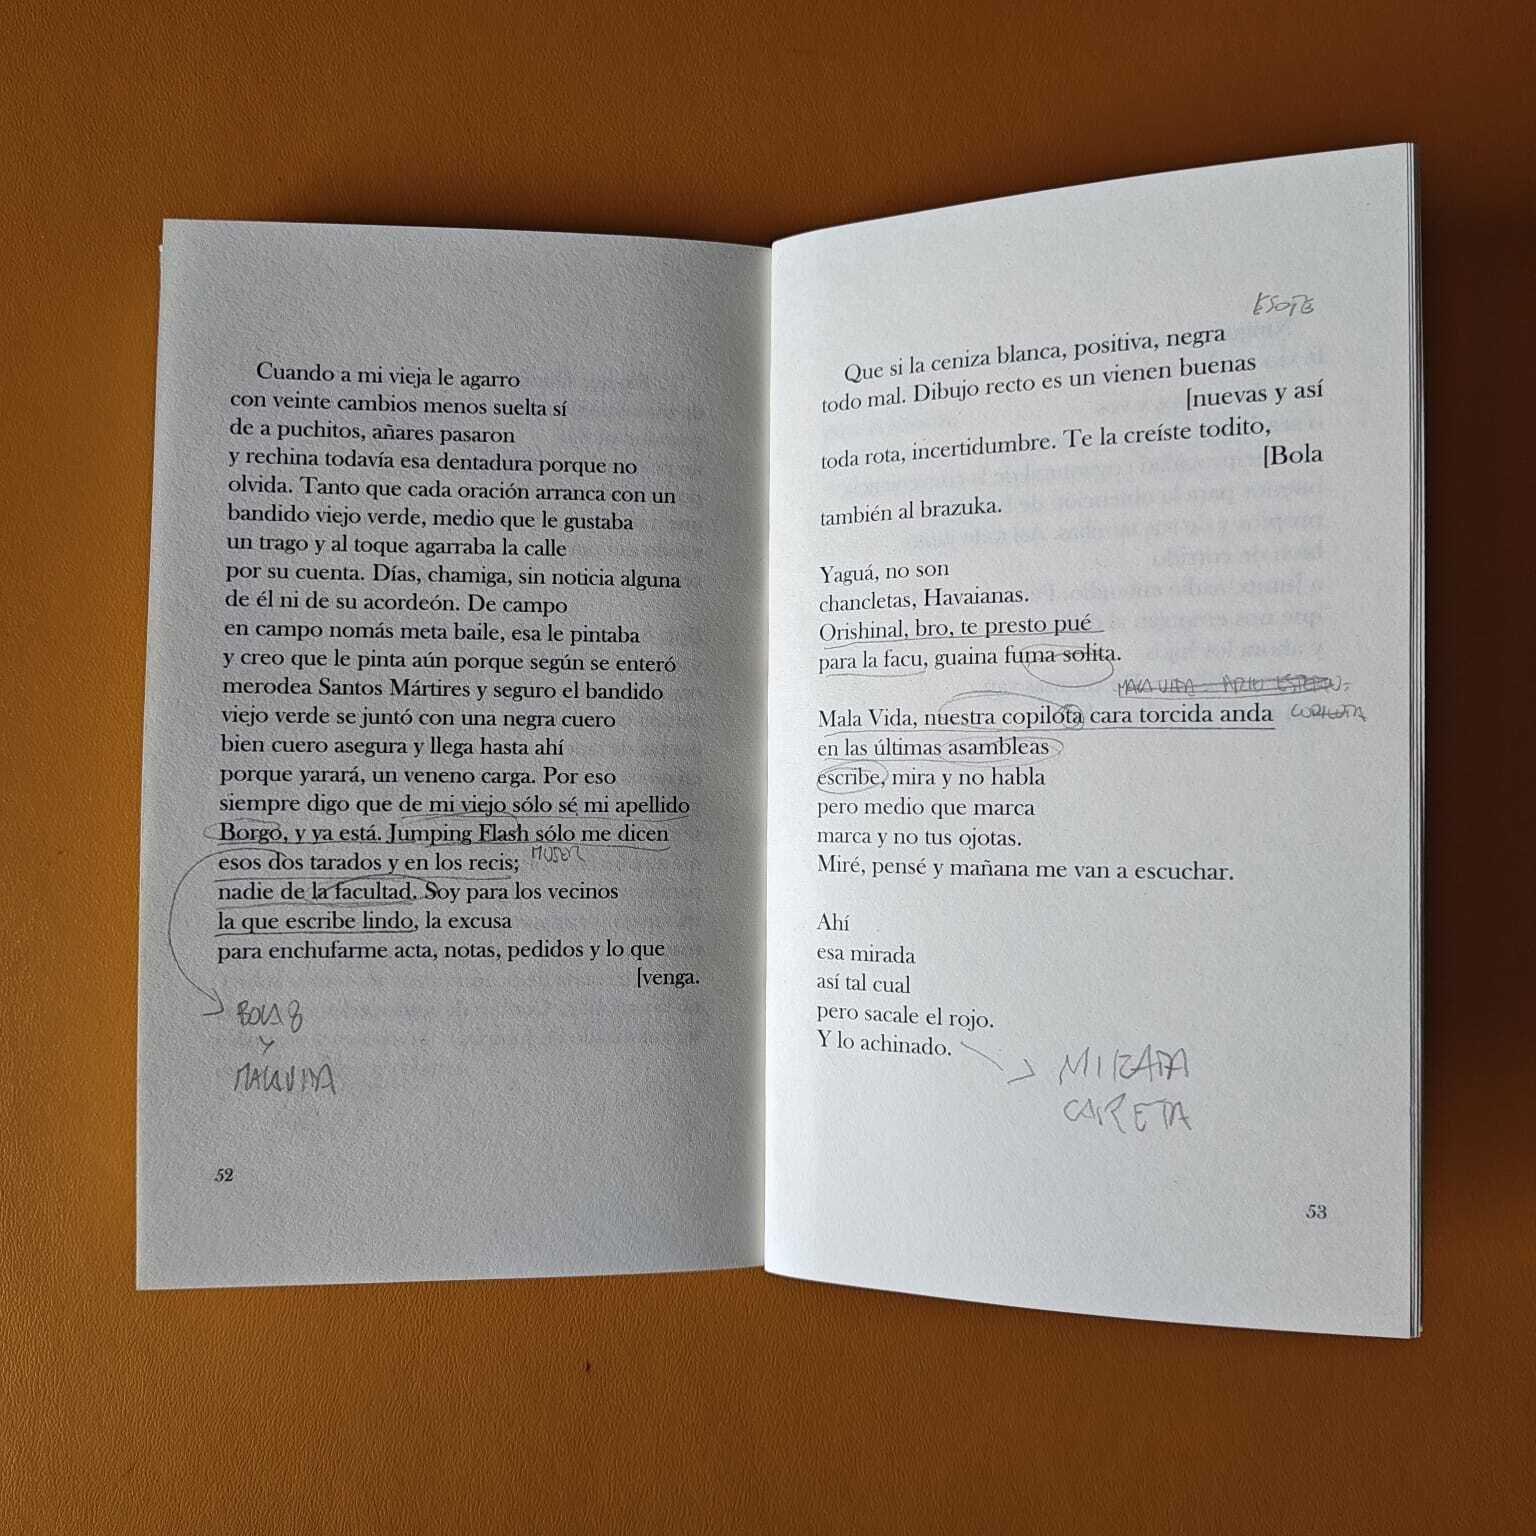 Cuando a mi vieja le agarro
con veinte cambios menos suelta sí
de a puchitos, añares pasaron
y rechina todavía esa dentadura porque no
olvida. Tanto que cada oración arranca con un
bandido viejo verde, medio que le gustaba
un trago y al toque agarraba la calle
por su cuenta. Días, chamiga, sin noticia alguna
de él ni de su acordeón. De campo
en campo nomás meta baile, esa le pintaba
y creo que le pinta aún porque según se enteró
merodea Santos Mártires y seguro el bandido
viejo verde se juntó con una negra cuero
bien cuero asegura y llega hasta ahí
porque yarará, un veneno carga. Por eso
siempre digo que de mi viejo sólo sé mi apellido
Borgo, y ya está. Jumping Flash sólo me dicen
esos dos tarados y en los recis;
MUJER
nadie de la facultad. Soy para los vecinos
la que escribe lindo, la excusa
para enchufarme acta, notas, pedidos y lo que
[venga.
BOLA 8
Y
MALAVIDA
52
ESOTE
Que si la ceniza blanca, positiva, negra
todo mal. Dibujo recto es un vienen buenas
[nuevas y así
toda rota, incertidumbre. Te la creíste todito,
[Bola
también al brazuka.
Yaguá, no son
chancletas, Havaianas.
Orishinal, bro, te presto pué
para la facu, guaina fuma solita.
MALA VIDA
Mala Vida, nuestra copilota cara torcida anda
COPILOTA
en las últimas asambleas
escribe, mira y no habla
pero medio que marca
marca y no tus ojotas.
Miré, pensé y mañana me van a escuchar.
Ahí
esa mirada
así tal cual
pero sacale el rojo.
Y lo achinado.
MIRADA
CARETA
53